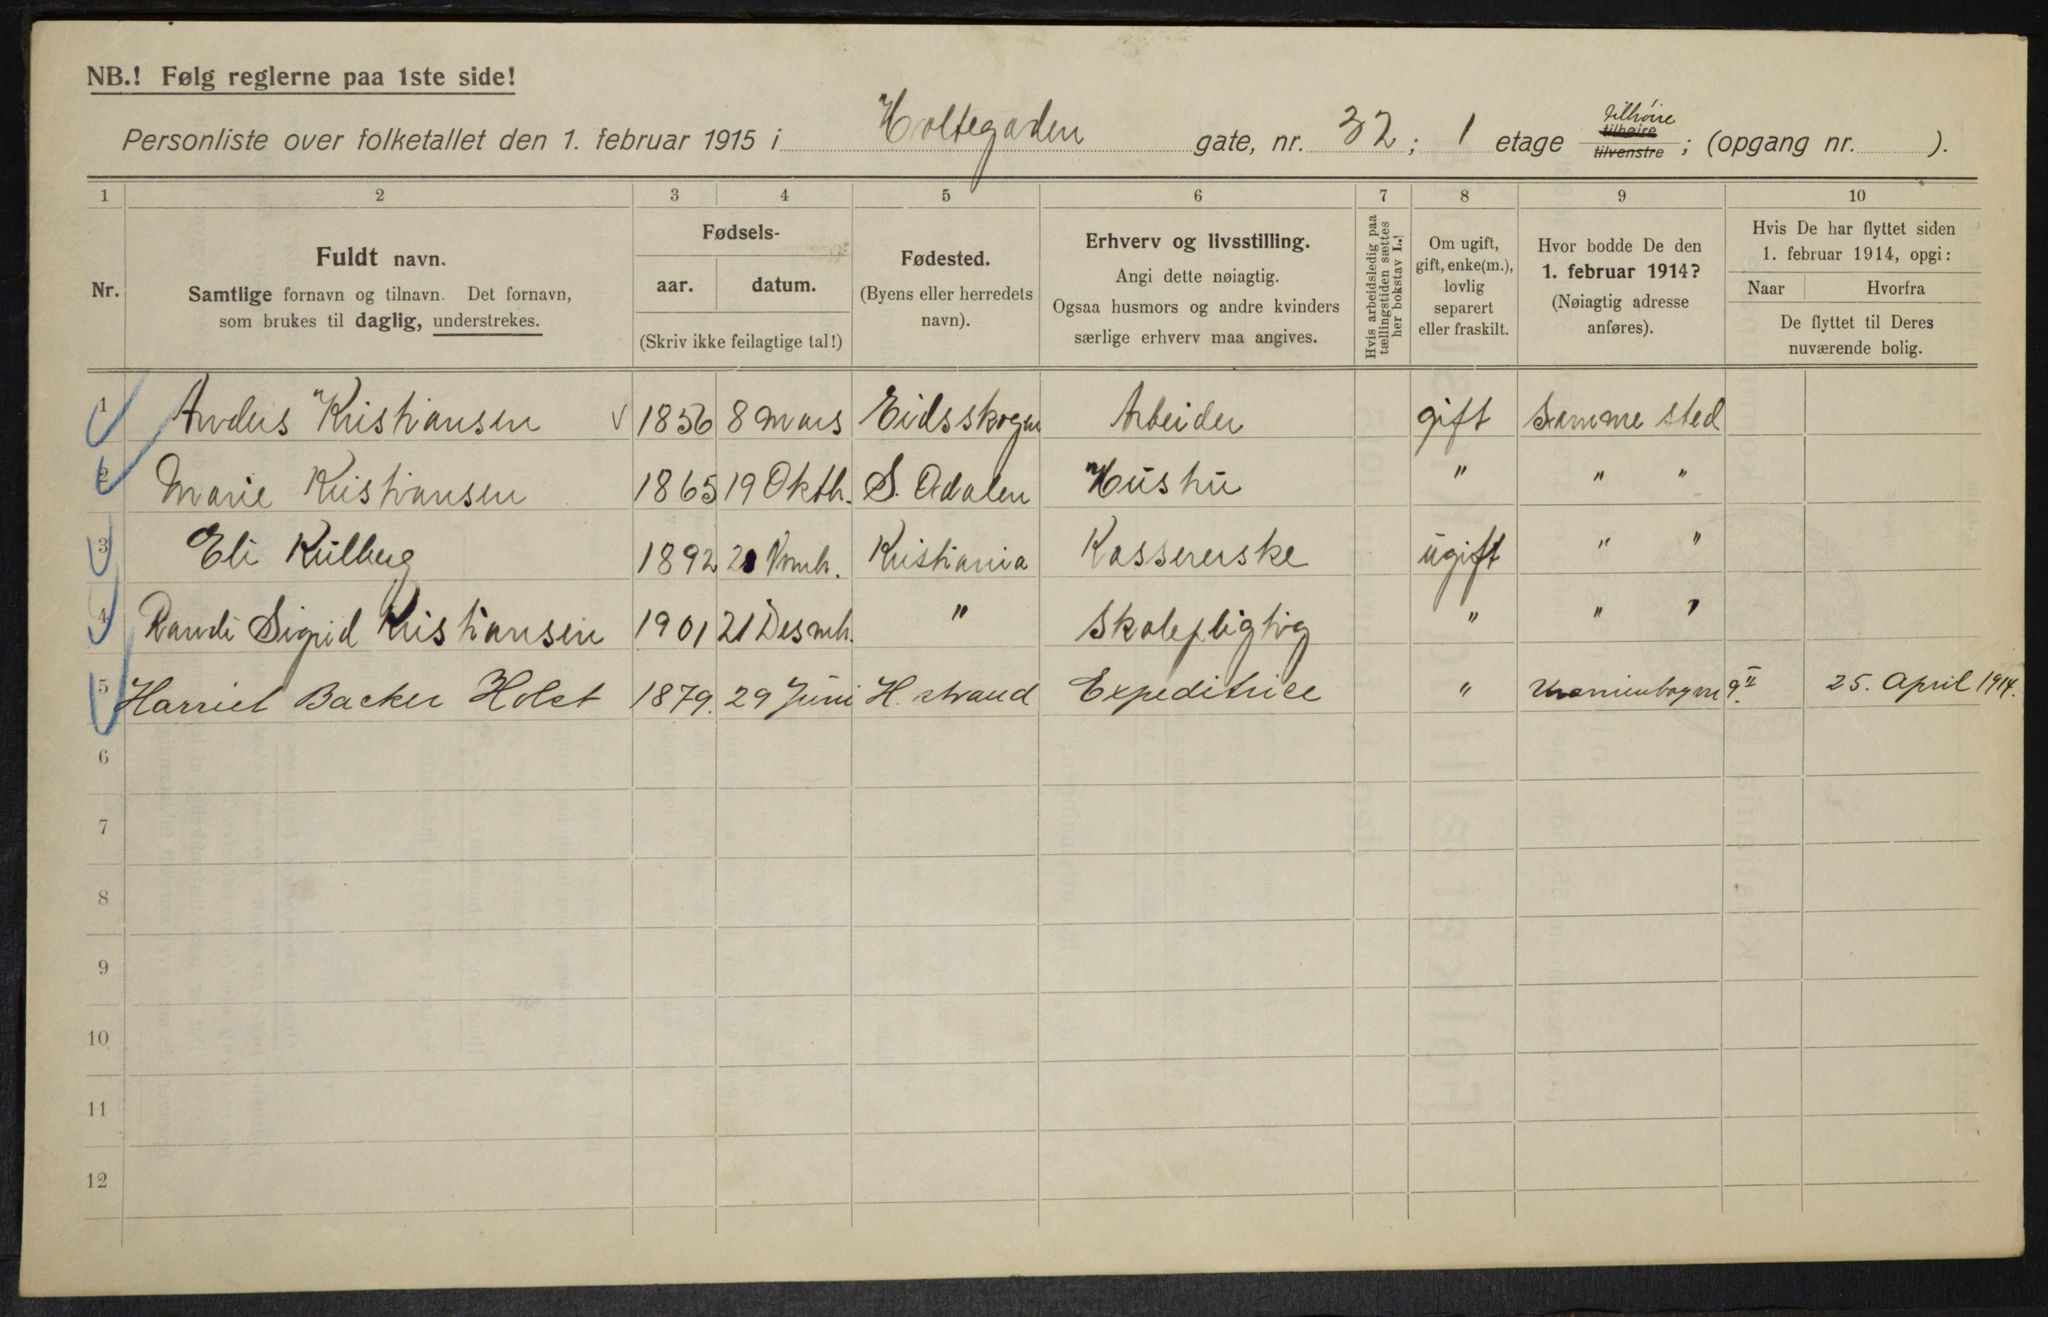 NB.! Følg reglerne paa 1ste side!
Personliste over folketallet den 1. februar 1915 i Holtegaden gate, nr. 32; 1 etage tilhøire tilvenstre; (opgang nr. ).
tilhöire
1 2 3 4 5 6 7 8 9 10
Nr.
Fuldt navn.
Samtlige fornavn og tilnavn. Det fornavn,
som brukes til daglig, understrekes.
Fødsels-
aar. datum.
(Skriv ikke feilagtige tal!)
Fødested.
(Byens eller herredets
navn).
Erhverv og livsstilling.
Angi dette nøiagtig.
Ogsaa husmors og andre kvinders
særlige erhverv maa angives.
Hvis arbeidsledig paa
tællingstiden sættes
her bokstav L.!
Om ugift,
gift, enke(m.),
lovlig
separert
eller fraskilt.
Hvor bodde De den
1. februar 1914?
(Nøiagtig adresse
anføres).
Hvis De har flyttet siden
1. februar 1914, opgi:
Naar Hvorfra
De flyttet til Deres
nuværende bolig.
1 Anders Kristiansen v 1856 8 Mars Eidsskogen Arbeider gift Samme sted
2 Marie Kristiansen 1865 19 Oktb. S. Odalen Hüshü " " "
3 Eli Külberg 1892 Kristiania Kassererske ügift " "
4 Randi Sigrid Kristiansen 1901 21 Desmb. " Skolepligtig " " "
5 Harriet Backer Holst 1879. 29 Juni H. strand Expeditrice " 9 II 25. April 1914.
6
7
8
9
10
11
12